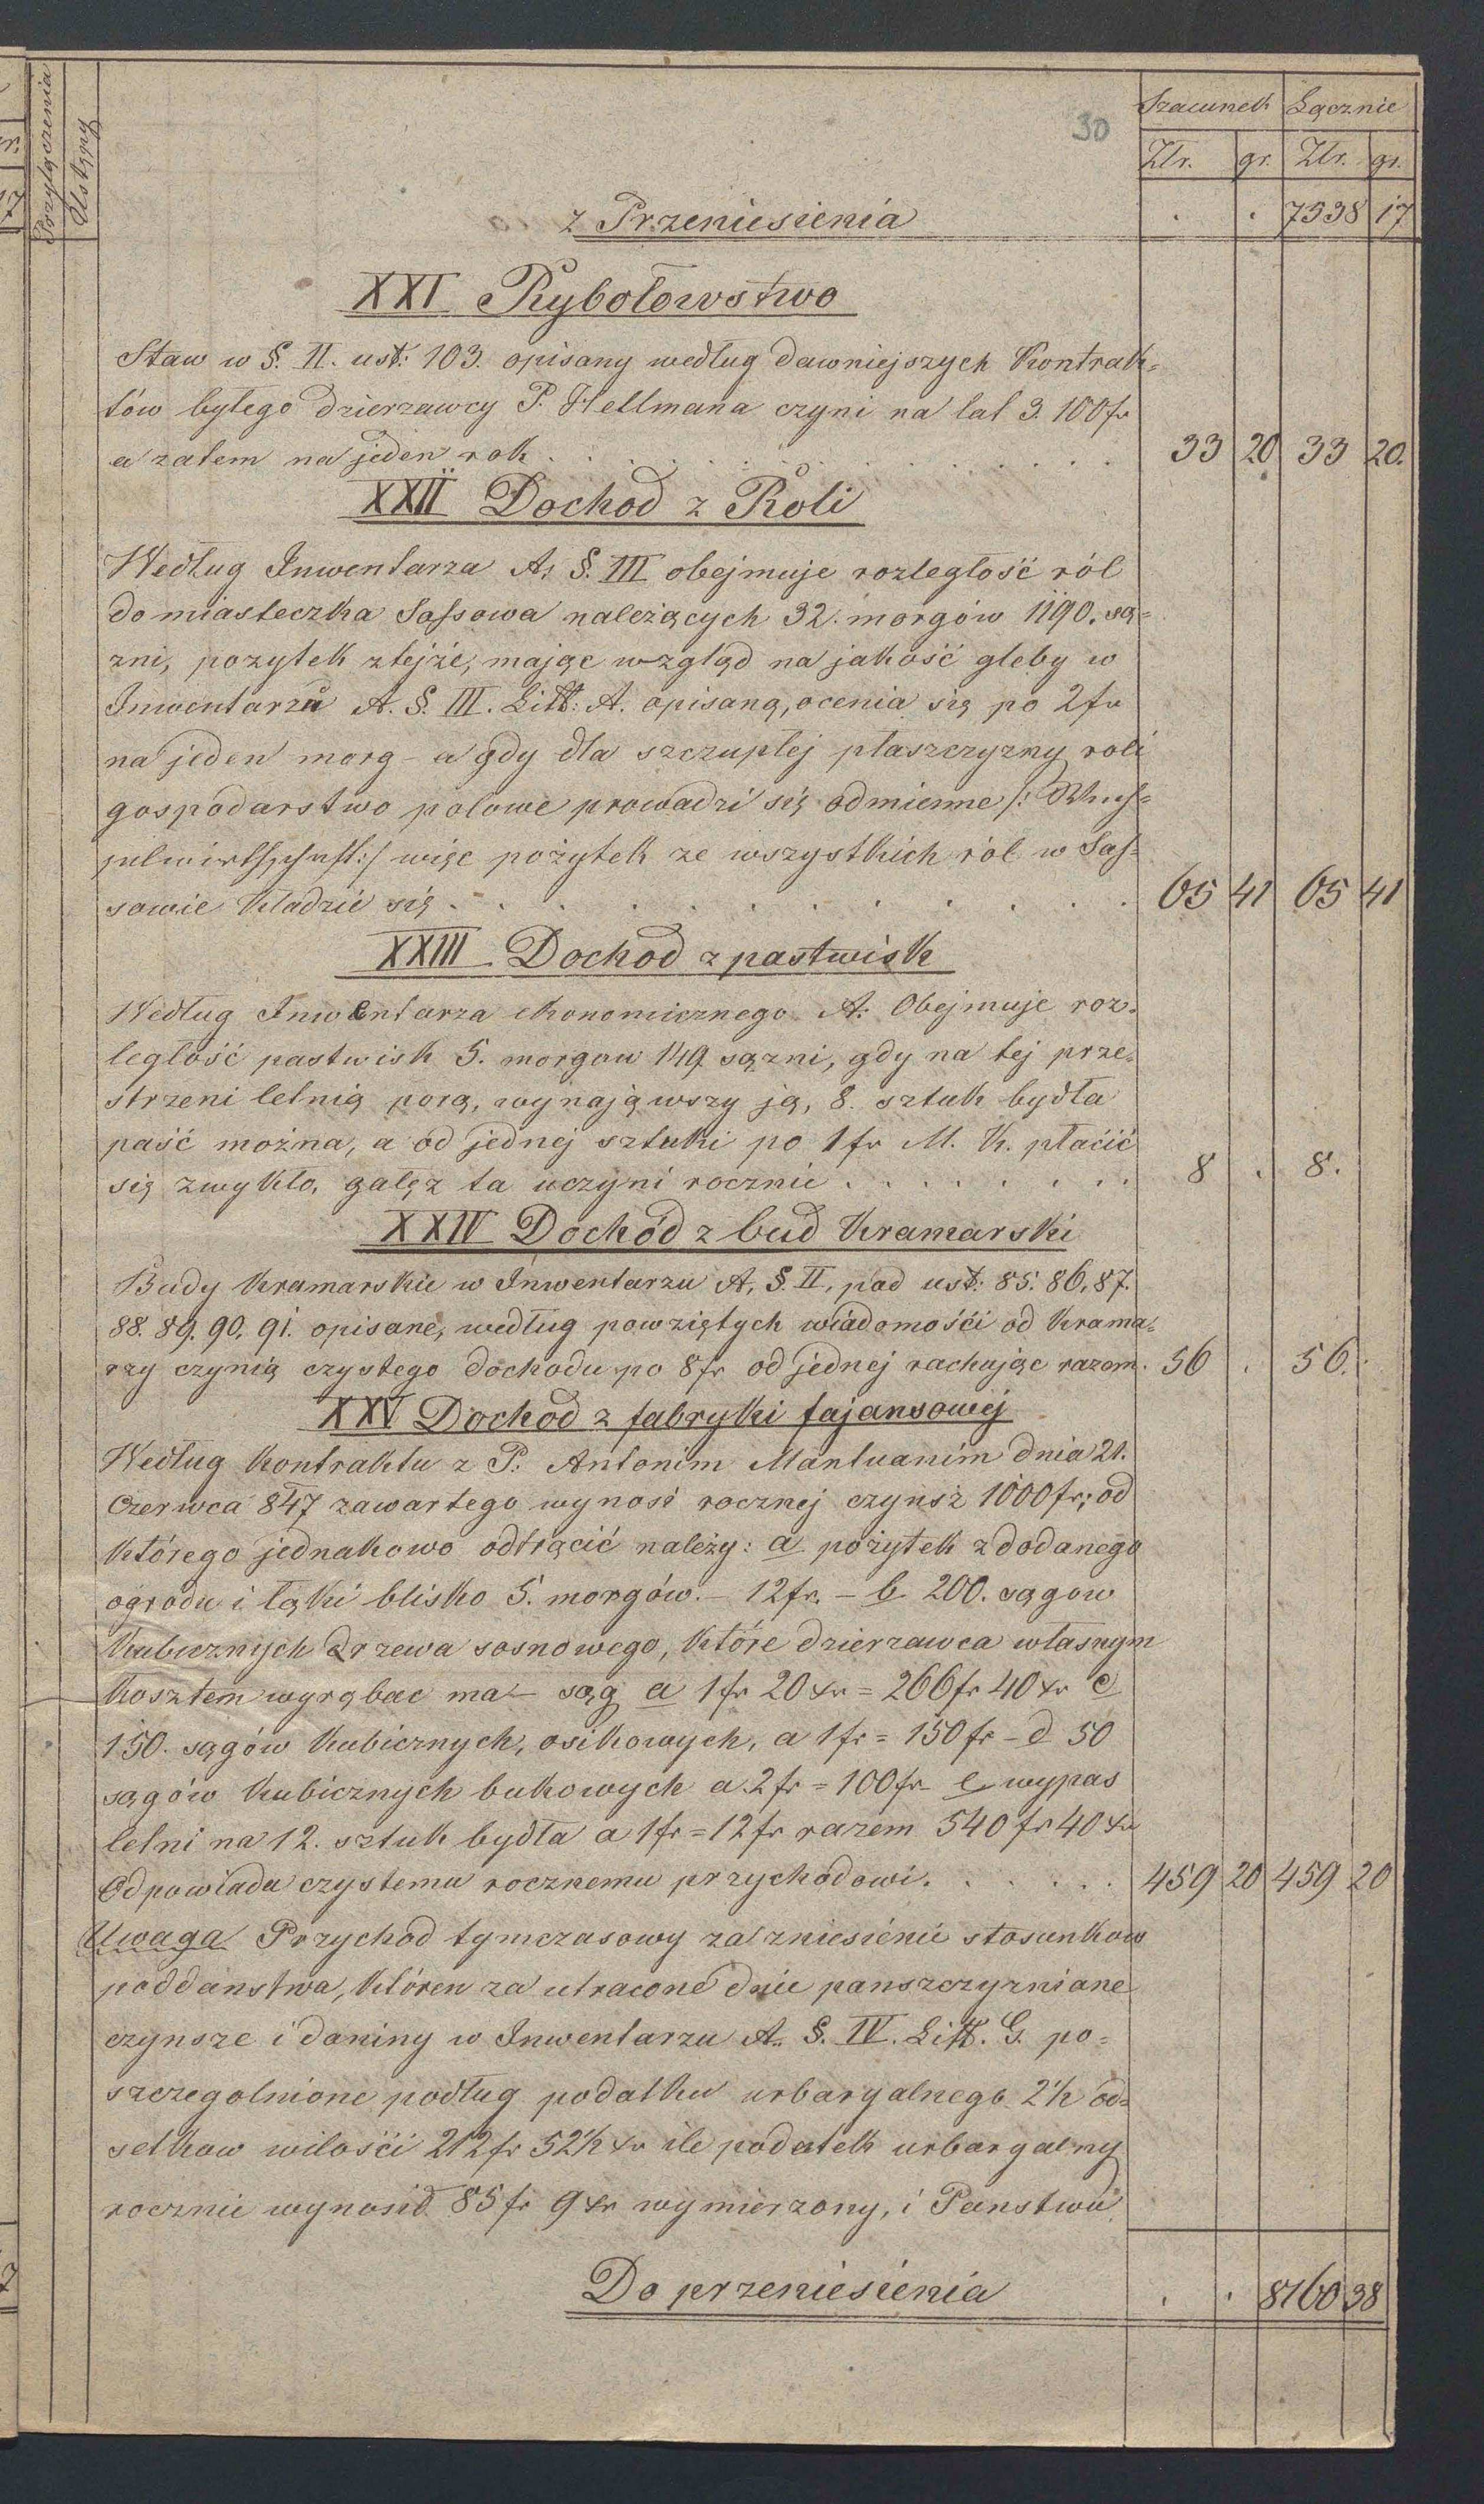 Przyłączenia
Ustępy
30
Szacunek Łącznie
Złr. gr. Złr. gr.
z Przeniesienia . . 7538 17
XXI Rybołowstwo
Staw w §. II. ust: 103. opisany według dawniejszych Kontrak=
tów byłego dzierzawcy P. Hellmana czyni na lat 3. 100 fr
a zatem na jeden rok . . . 33 20 33 20.
XXII Dochod z Roli
Według Inwentarza A, §. III obejmuje rozległość ról
do miasteczka Sassowa należących 32. morgów 1190. są=
zni, pozytek ztejże, mając wzgląd na jakość gleby w
Inwentarzu A. §. III. Litt: A. opisaną, ocenia się po 2 fr
na jeden morg - a gdy dla szczupłej płaszczyzny roli
gospodarstwo polowe prowadzi się odmienne /: Wech=
selwirthschaft :/ więc pożytek ze wszystkich ról w Sas=
sowie kladzie się . . . 65 41 65 41
XXIII Dochod z pastwisk
Według Inwentarza ekonomicznego A: Obejmuje roz=
ległość pastwisk 5. morgow 149 sązni, gdy na tej prze=
strzeni letnią porą, wynająwszy ją, 8. sztuk bydła
paść można, a od jednej sztuki po 1 fr M. K. płacić
się zwykło, gałęz ta uczyni rocznie . . . 8 . 8.
XXIV Dochód z bud Kramarski
Budy Kramarskie w Inwentarzu A, §. II, pod ust: 85. 86. 87.
88. 89. 90. 91. opisane, według powziętych wiadomośći od Krama=
rzy czynią czystego dochodu po 8 fr od jednej rachując razem. 56 . 56.
XXV Dochod z fabryki fajansowej
Według Kontraktu z P. Antonim Mantuanim dnia 21.
Czerwca 847 zawartego wynosi rocznej czynsz 1000 fr; od
którego jednakowo odtrącić należy: a pożytek z dodanego
ogrodu i łąki blisko 5. morgów. - 12 fr. - b 200. sągow
Kubicznych drzewa sosnowego, które dzierzawca własnym
Kosztem wyrąbac ma - sąg a 1 fr 20 xr = 266 fr 40 xr c
150. sągów Kubicznych, osikowych, a 1 fr = 150 fr - d 50
sągów Kubicznych bukowych a 2 fr = 100 fr - e wypas
letni na 12. sztuk bydła a 1 fr = 12 fr razem 540 fr 40 xr
Odpowiada czystemu rocznemu przychodowi. . . . 459 20 459 20
Uwaga Przychod tymczasowy za zniesienie stosunkow
poddaństwa, któren za utracone dnie panszczyzniane
czynsze i daniny w Inwentarzu A. §. IV. Litt. G. po=
szczegolnione podług podatku urbaryalnego 2½ od=
setkow wilośći 212 fr 52½ xr ile podatek urbaryalny
rocznie wynosił 85 fr 9 xr wymierzony, i Panstwu
Do przeniesienia . . 8160 38